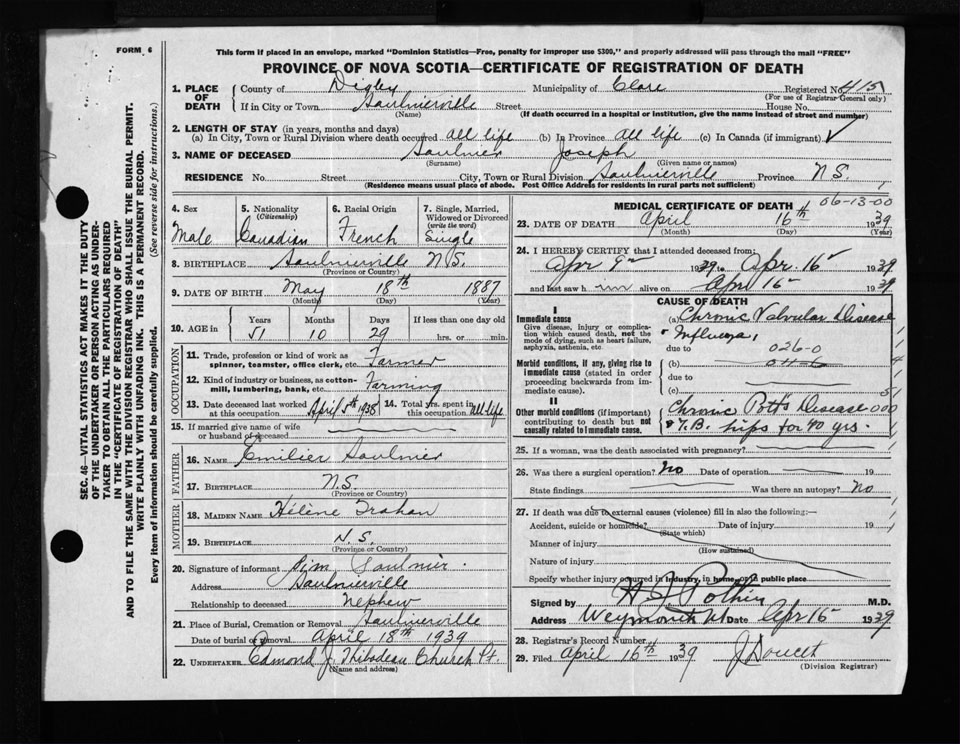 FORM 6
This form if placed in an envelope, marked "Dominion Statistics—Free, penalty for improper use $300," and properly addressed will pass through the mail "FREE"
PROVINCE OF NOVA SCOTIA—CERTIFICATE OF REGISTRATION OF DEATH
1. PLACE OF DEATH
County of Digby Municipality of Clare Registered No. 415
(For use of Registrar-General only)
If in City or Town Saulnierville Street House No.
(Name) (If death occurred in a hospital or institution, give the name instead of street and number)
2. LENGTH OF STAY (in years, months and days)
(a) In City, Town or Rural Division where death occurred all life (b) In Province all life (c) In Canada (if immigrant)
3. NAME OF DECEASED Saulnier Joseph
(Surname) (Given name or names)
RESIDENCE No. Street City, Town or Rural Division Saulnierville Province N.S.
(Residence means usual place of abode. Post Office Address for residents in rural parts not sufficient)
4. Sex Male
5. Nationality (Citizenship) Canadian
6. Racial Origin French
7. Single, Married, Widowed or Divorced (write the word) Single
8. BIRTHPLACE Saulnierville N.S.
(Province or Country)
9. DATE OF BIRTH May 18th 1887
(Month) (Day) (Year)
10. AGE in Years Months Days If less than one day old
51 10 29 hrs. or min.
OCCUPATION
11. Trade, profession or kind of work as spinner, teamster, office clerk, etc. Farmer
12. Kind of industry or business, as cotton-mill, lumbering, bank, etc. Farming
13. Date deceased last worked at this occupation April 5th 1938
14. Total yrs. spent in this occupation All life
15. If married give name of wife or husband of deceased
FATHER
16. NAME Emilien Saulnier
17. BIRTHPLACE N.S.
(Province or Country)
MOTHER
18. MAIDEN NAME Hélène Trahan
19. BIRTHPLACE N.S.
(Province or Country)
20. Signature of informant Sim Saulnier
Address Saulnierville
Relationship to deceased nephew
21. Place of Burial, Cremation or Removal Saulnierville
Date of burial or removal April 18th 1939
22. UNDERTAKER Edmond J. Thibodeau Church Pt.
(Name and address)
MEDICAL CERTIFICATE OF DEATH 06-13-00
23. DATE OF DEATH April 16th 1939
(Month) (Day) (Year)
24. I HEREBY CERTIFY that I attended deceased from:
Apr 9th 1939 to Apr. 16 1939
and last saw h im alive on Apr 16 1939
CAUSE OF DEATH
I
Immediate cause
Give disease, injury or complication which caused death, not the mode of dying, such as heart failure, asphyxia, asthenia, etc.
(a) Chronic Valvular Disease
Influenza,
due to 026-0
Morbid conditions, if any, giving rise to immediate cause (stated in order proceeding backwards from immediate cause).
(b)
due to
(c)
II
Other morbid conditions (if important) contributing to death but not causally related to immediate cause.
Chronic Potts Disease
& T.B. hips for 40 yrs.
25. If a woman, was the death associated with pregnancy?
26. Was there a surgical operation? No Date of operation 19
State findings Was there an autopsy? No
27. If death was due to external causes (violence) fill in also the following:—
Accident, suicide or homicide? Date of injury 19
(State which)
Manner of injury
(How sustained)
Nature of injury
Specify whether injury occurred in industry, in home, or in public place
Signed by M.D.
Address Weymouth Date Apr 16 1939
28. Registrar's Record Number
29. Filed April 16th 1939 J Doucet
(Division Registrar)
SEC. 46—VITAL STATISTICS ACT MAKES IT THE DUTY
OF THE UNDERTAKER OR PERSON ACTING AS UNDERTAKER TO OBTAIN ALL THE PARTICULARS REQUIRED
IN THE "CERTIFICATE OF REGISTRATION OF DEATH"
AND TO FILE THE SAME WITH THE DIVISION REGISTRAR WHO SHALL ISSUE THE BURIAL PERMIT.
WRITE PLAINLY WITH UNFADING INK. THIS IS A PERMANENT RECORD.
Every item of information should be carefully supplied. (See reverse side for instructions.)